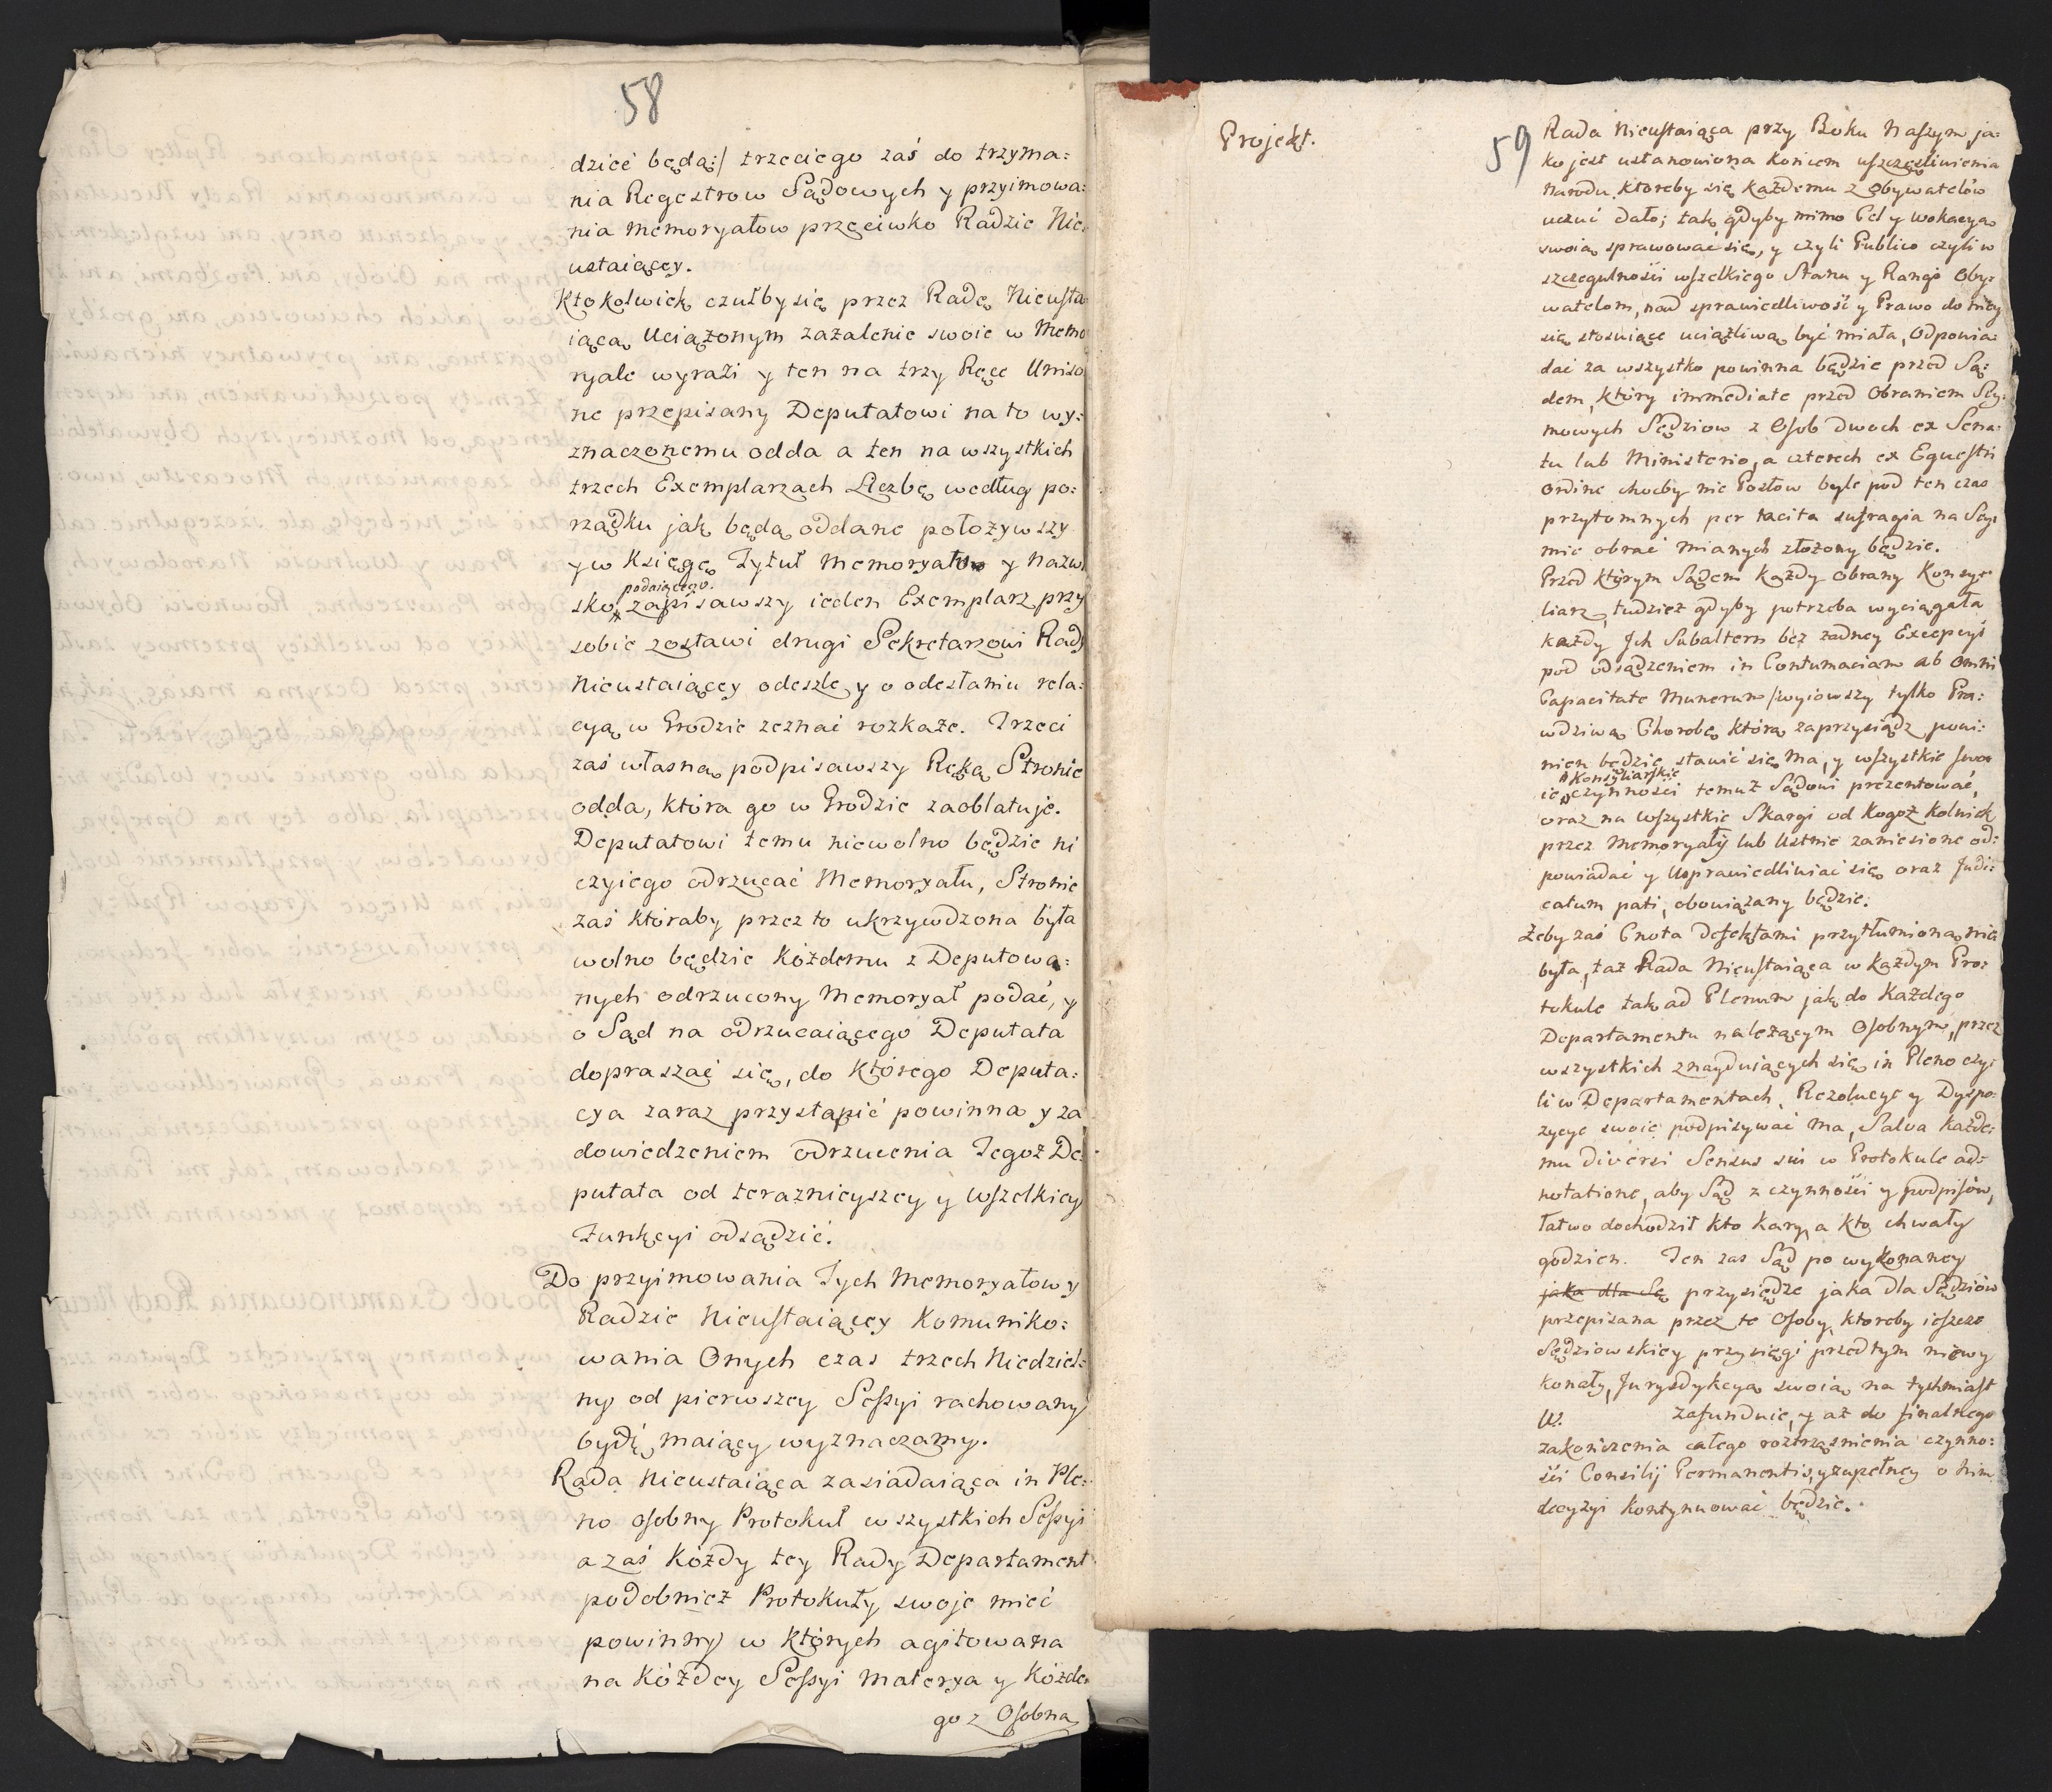 58
dzieć będą:/ trzeciego zaś do trzyma=
nia Regestrow Sądowych y przyimowa=
nia memoryałow przeciwko Radzie Nie=
ustaiącey.
Ktokolwiek czułby się przez Radę Nieusta
iącą Uciążonym zażalenie swoie w Memo
ryale wyrazi y ten na trzy Ręce Uniso
ne przepisany Deputatowi na to wy=
znaczonemu odda a ten na wszystkich
trzech Exemplarzach Liczbę według po=
rządku jak będą oddane położywszy
y w Księgę Tytuł Memoryału y Nazwi
podaiącego.
sko zapisawszy ieden Exemplarz przy
sobie zostawi drugi Sekretarzowi Rady
Nieustaiącey odeszle, y o odesłaniu rela=
cyą w Grodzie zeznać rozkaże. Trzeci
zaś własną podpisawszy Ręką Stronie
odda, która go w Grodzie zaoblatuje.
Deputatowi temu niewolno będzie ni
czyiego odrzucać Memoryału, Stronie
zaś któraby przez to ukrzywdzona była
wolno będzie Kóżdemu z Deputowa=
nych odrzucony Memoryał podać, y
o Sąd na odrzucaiącego Deputata
dopraszać się, do którego Deputa=
cya zaraz przystąpić powinna y za
dowiedzeniem odrzucenia Tegoż De=
putata od teraznieyszey y wszelkiey
Funkcyi odsądzić.
Do przyimowania Tych Memoryałow y
Radzie Nieustaiącey Kommuniko=
wania Onych czas trzech Niedziel=
ny od pierwszey Sessyi rachowany
bydź maiący wyznaczamy.
Rada Nieustaiąca zasiadaiąca in Ple=
no osobny Protokuł wszystkich Sessyi
a zaś Kóżdy tey Rady Departament
podobnież Protokuły swoje mieć
powinny w których agitowana
na Kóżdey Sessyi Materya y Kóżde=
go z Osobna
Projekt.
59
Rada Nieustaiąca przy Boku Naszym ja=
ko jest ustanowiona Końcem uszczęśliwienia
Narodu, ktoreby się każdemu z Obywatelów
uczuć dało; tak gdyby mimo Cel y wokacyą
swoią sprawować się, y czyli Publico czyli w
szczegulności wszelkiego Stanu y Rangi Oby=
watelom, nad sprawiedliwość y Prawo do niey
się stosuiące uciążliwą być miała, Odpowia=
dać za wszystko powinna będzie przed Są=
dem, który immediate przed Obraniem Sey=
mowych Sędziow z Osob dwoch ex Sena=
tu lub Ministerio, a czterech ex Equestri
Ordine choćby nie Posłow byle pod ten czas
przytomnych per tacita sufragia na Sey=
mie obrać mianych złożony będzie.
Przed którym Sądem każdy obrany Konsy=
liarz, tudzież gdyby potrzeba wyciągała
każdy Jch Subaltern bez żadney Excepcyi
pod odsądzeniem in Contumaciam ab omni
Capacitate Munerum /wyiowszy tylko Pra=
wdziwą Chorobę, którą zaprzysiądz powi=
nien będzie, stawić się ma, y wszystkie swo
Konsyliarskie
ie czynności temuż Sądowi prezentować,
oraz na wszystkie Skargi od Kogoż kolwiek
przez Memoryały lub Ustnie zaniesione od=
powiadać y Usprawiedliwiać się oraz Judi=
catum pati, obowiązany będzie.
Zeby zaś Cnota Defektami przytłumiona nie
była, taż Rada Nieustaiąca w każdym Pro=
tokule tak ad Plenum jak do każdego
Departamentu należącym Osobnym, przez
wszystkich znayduiących się in Pleno czy=
li w Departamentach, Rezolucye y Dyspo=
zycye swoie podpisywać ma, Salva każde=
mu diversi Sensus sui w Protokule ad=
notatione, aby Sąd z czynności y podpisów,
łatwo dochodził kto kary, a kto chwały
godzien. Ten zas Sąd po wykonaney
jaka dla Sę przysiędze jaka dla Sędziów
przepisana przez te Osoby, ktoreby ieszcze
Sędziowskiey przysięgi przed tym niewy
konały, Jurysdykcyą swoią na tychmiast
W. zafunduie, y aż do finalnego
zakończenia całego roztrząsnienia czynno=
ści Consilij Permanentis, y zupełney o Nim
decyzyi kontynuować będzie.